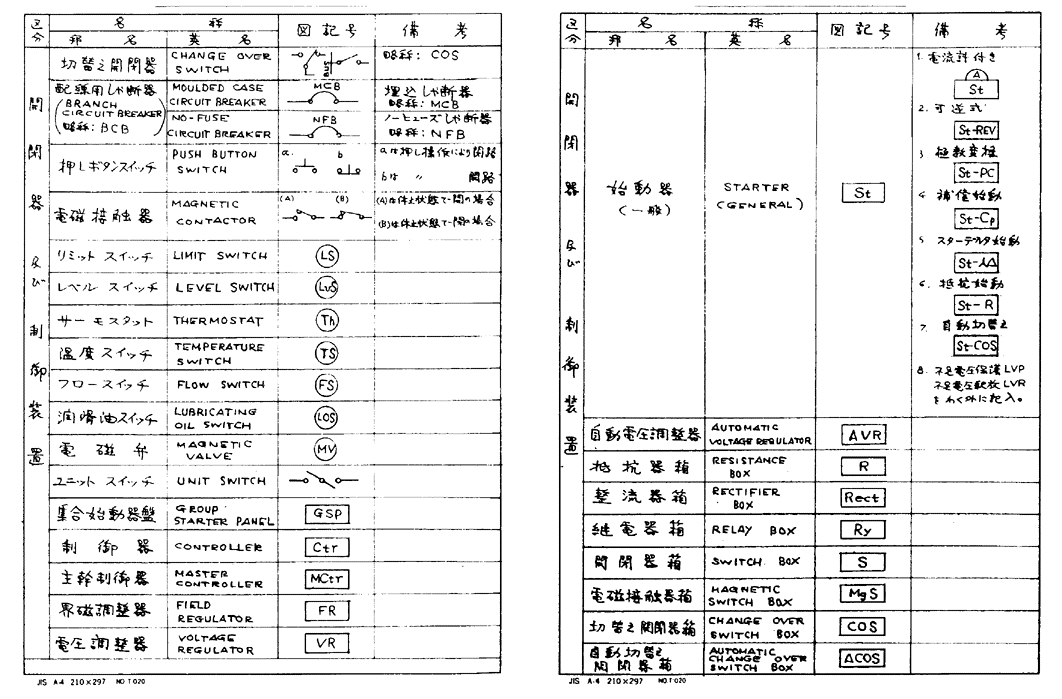 区分
名 称
邦 名
英 名
図記号
備 考
開閉器及び制御装置
切替え開閉器
CHANGE OVER
SWITCH
BUS
略称: COS
配線用しゃ断器
(BRANCH
CIRCUIT BREAKER
略称: BCB)
MOULDED CASE
CIRCUIT BREAKER
MCB
埋込しゃ断器
略称: MCB
NO-FUSE
CIRCUIT BREAKER
NFB
ノーヒューズしゃ断器
略称: NFB
押しボタンスイッチ
PUSH BUTTON
SWITCH
a. b
aは押し操作により閉路
bは 〃 開路
電磁接触器
MAGNETIC
CONTACTOR
(A) (B)
(A)は休止状態で開の場合
(B)は休止状態で閉の場合
リミット スイッチ
LIMIT SWITCH
LS
レベル スイッチ
LEVEL SWITCH
LvS
サーモスタット
THERMOSTAT
Th
温度スイッチ
TEMPERATURE
SWITCH
TS
フロースイッチ
FLOW SWITCH
FS
潤滑油スイッチ
LUBRICATING
OIL SWITCH
LOS
電磁弁
MAGNETIC
VALVE
MV
ユニット スイッチ
UNIT SWITCH
集合始動器盤
GROUP
STARTER PANEL
GSP
制御器
CONTROLLER
Ctr
主幹制御器
MASTER
CONTROLLER
MCtr
界磁調整器
FIELD
REGULATOR
FR
電圧調整器
VOLTAGE
REGULATOR
VR
JIS A-4 210×297 NO T020
区分
名 称
邦 名
英 名
図記号
備 考
開閉器及び制御装置
始動器
(一般)
STARTER
(GENERAL)
St
1 電流計付き
A
St
2. 可逆式
St-REV
3 極数変換
St-PC
4 補償始動
St-Cp
5 スターデルタ始動
St-⅄Δ
6. 抵抗始動
St-R
7. 自動切替え
St-COS
8. 不足電圧保護 LVP
不足電圧釈放 LVR
をわく外に記入。
自動電圧調整器
AUTOMATIC
VOLTAGE REGULATOR
AVR
抵抗器箱
RESISTANCE
BOX
R
整流器箱
RECTIFIER
BOX
Rect
継電器箱
RELAY BOX
Ry
開閉器箱
SWITCH BOX
S
電磁接触器箱
MAGNETIC
SWITCH BOX
MgS
切替え開閉器箱
CHANGE OVER
SWITCH BOX
COS
自動切替え
開閉器箱
AUTOMATIC
CHANGE OVER
SWITCH BOX
ACOS
JIS A-4 210×297 NO T020